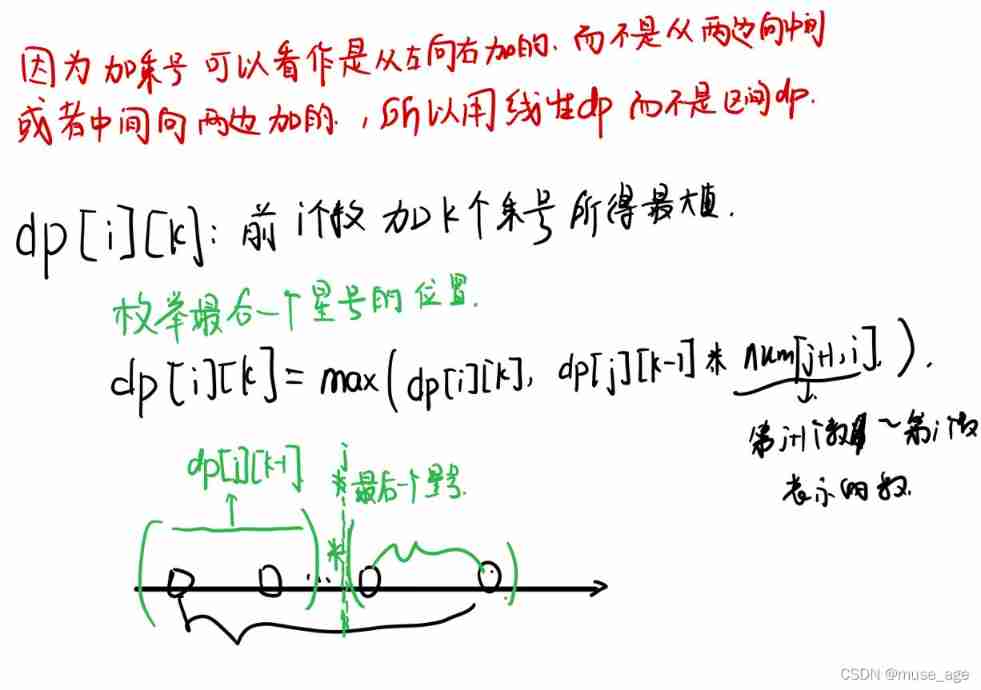 因为加乘号可以看作是从左向右加的.而不是从两边向中间
或者中间向两边加的.,所以用线性dp而不是区间dp.
dp[i][k]:前i个数加k个乘号所得最大值.
枚举最后一个星号的位置.
dp[i][k]=max(dp[i][k], dp[j][k-1]*num[j+1,i]).
第j+1个数~第i个数
表示的数.
dp[j][k-1]
j
*最后一个星号.
*
...
CSDN @muse_age